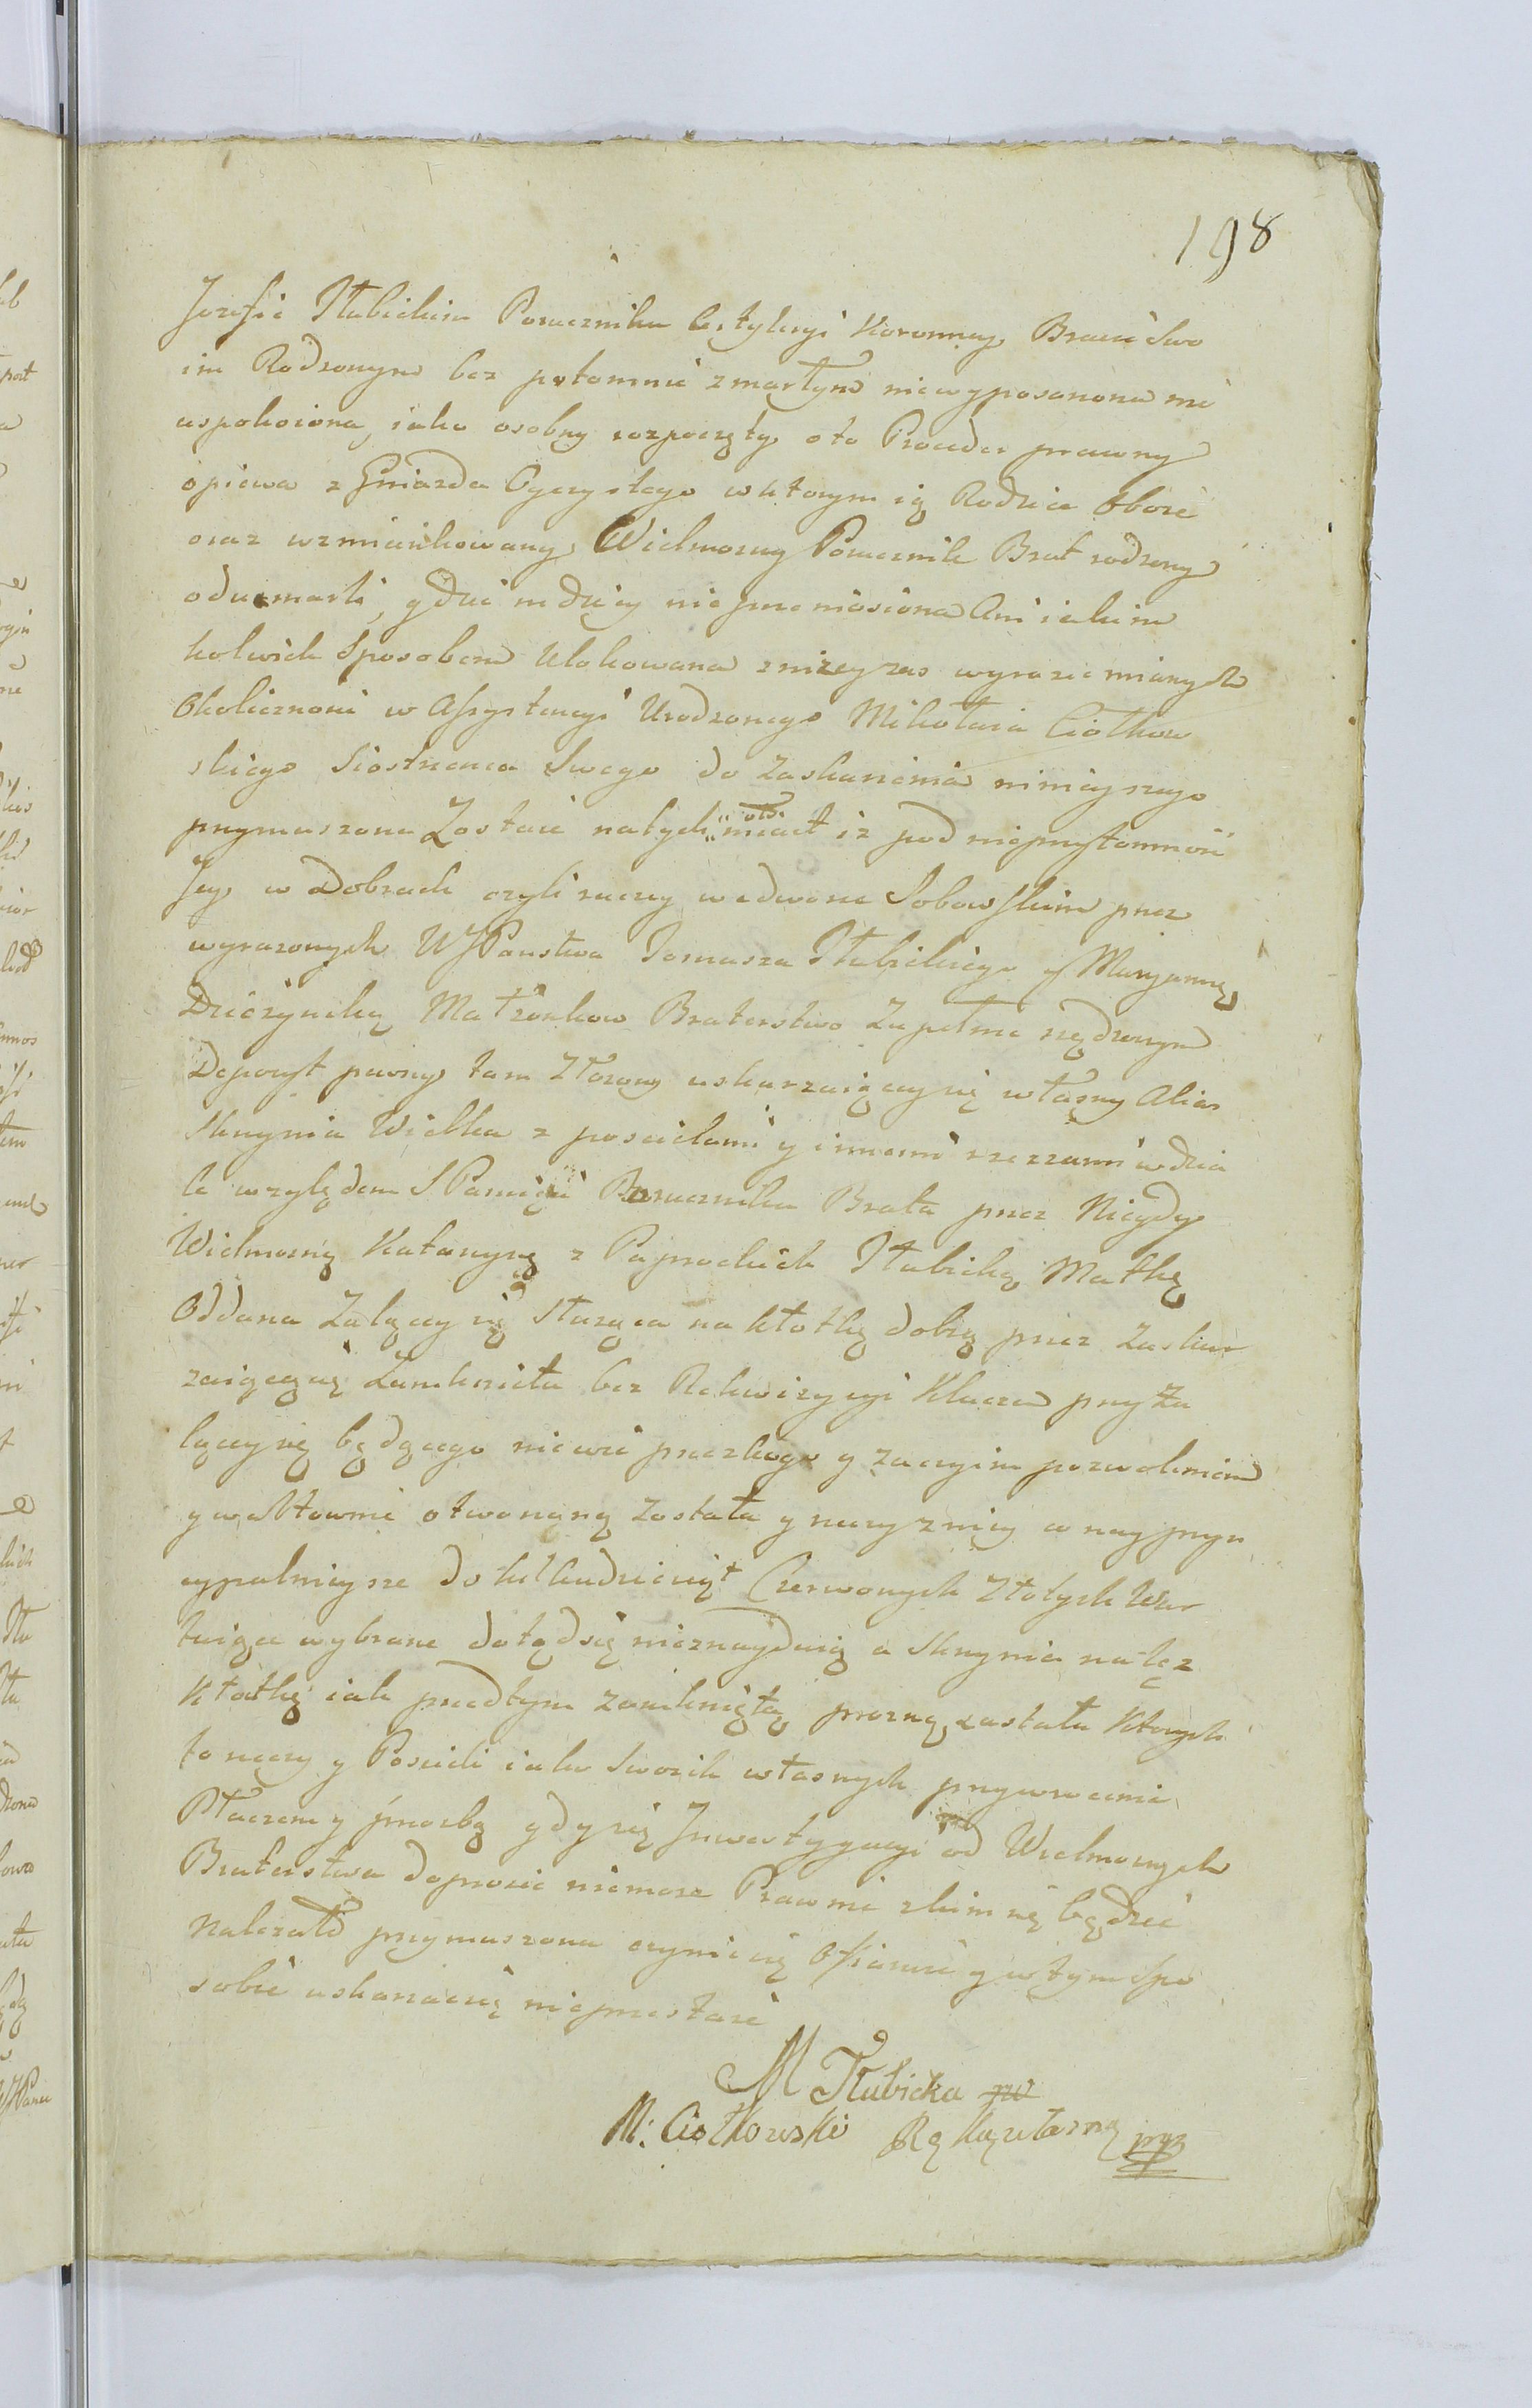 198
Jozefie Tłubickim Poruczniku Artyleryi Koronney Bracie Swo
im Rodzonym bez potomnie zmarłym niewyposazona nie
uspokoiona, iako osobny rozpoczęty oto Proceder prawny
opiewa z Gniazda Oyczystego wktorym ią Rodzice Oboie
oraz wzmiankowany Wielmozny Porucznik Brat rodzony
odumarli, gdzie indziey nieprzeniosiona Ani iakim
kolwiek Sposobem Ulokowana znizey zas wyrazic mianych
Okolicznosci w Assystencyi Urodzonego Mikołaia Ciołkow
skiego Siostrzenca Swego do Zaskarzenia ninieyszego
przymuszona Zostaie natych miast iz pod nieprzytomnosc
Jey w Dobrach czyli raczey wedworze Sobowskim przez
wyrazonych WJPanstwa Tomasza Tłubickiego y Maryannę
Małzonkow Braterstwo Zupełnie rządzonym
Depozyt pewny tam Złozony uskarzaiącey się własny Alias
Skrzynia Wielka z poscielami y innemi rzeczami wdzia
le względem S Pamięci Porucznika Brata przez Niegdy
Wielmozną Katarzynę z Paprockich Tłubicką Matkę
Oddana Zalącey się Słuząca na kłotkę dobrą przez Zaskar
zaiącąsię Zamknieta bez Rekwizycyi Klucza przy Za
lącey się będącego niewie przezkogo y zaczyim pozwoleniem
gwałtownie otworzoną została y rzeczy zniey co nayprzyn
cypalnieysze do kilkudziesiąt Czerwonych Złotych War
tuiące wybrane dotądsię nieznayduią a Skrzynia natęz
Kłotkę iak przedtym zamkniętą prozną została Ktorych
to rzeczy y Poscieli iako Swoich własnych przywrocenia
Płaczem y prozbą gdy się Inwestygacyi od Wielmoznych
Braterstwa doprosic niemoze Prawnie zkim się będzie
Nalezało przymuszona czynic się Ofiaruie y wtym Spo
sobie uskarzacsię nieprzestaie
M Tłubicka
M: Ciołkowski Ręką własną